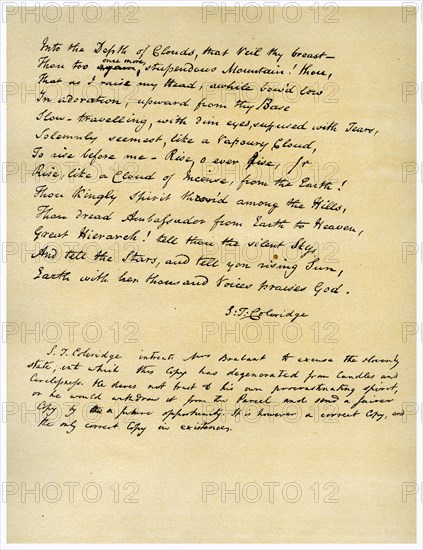 Into the Depth of Clouds, that Veil thy breast—
Thou too once more, stupendous Mountain! thou,
That as I raise my Head, awhile bow'd low
In adoration, upward from thy Base
Slow-travelling, with dim eyes suffused with Tears,
Solemnly seemest, like a Vapoury Cloud,
To rise before me – Rise, o ever Rise,
Rise, like a Cloud of Incense, from the Earth!
Thou Kingly Spirit thron'd among the Hills,
Thou dread Ambassador from Earth to Heaven,
Great Hierarch! tell thou the silent Sky,
And tell the Stars, and tell yon rising Sun,
Earth with her thousand Voices praises God.
S. T. Coleridge
S. T. Coleridge intreats Mrs Brabant to excuse the slovenly
state, into which this Copy has degenerated from Candles and
Carelessness. He dares not trust to his own procrastinating spirit,
or he would withdraw it from the Parcel and send a fairer
Copy by a future opportunity. It is however a correct Copy, and
the only correct Copy in existence.
PHOTO12